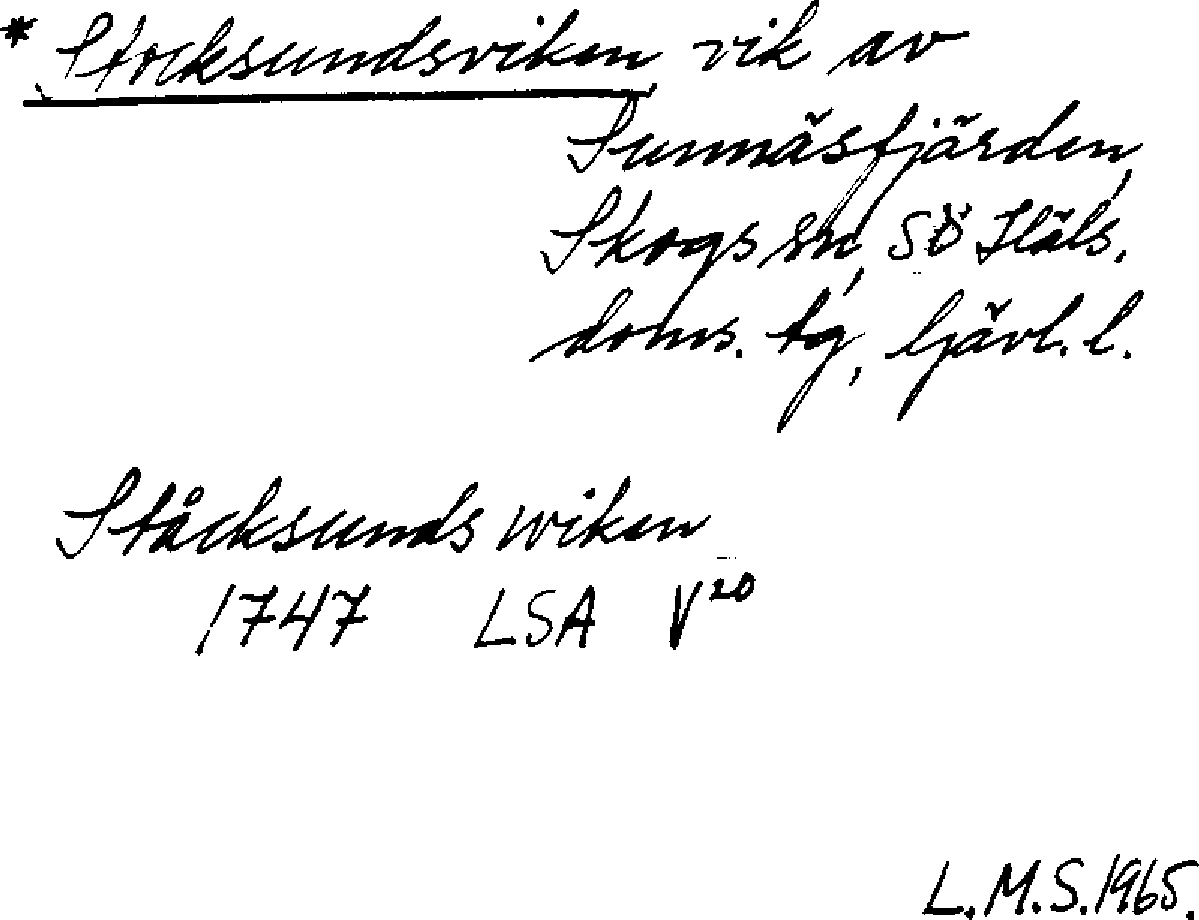 * Stocksundsviken vik av
Sunnäsfjärden,
Skogs sn, SÖ Häls.
doms. tg, Gävl. l.
Ståcksunds wiken
1747 LSA V20
L.M.S. 1965.